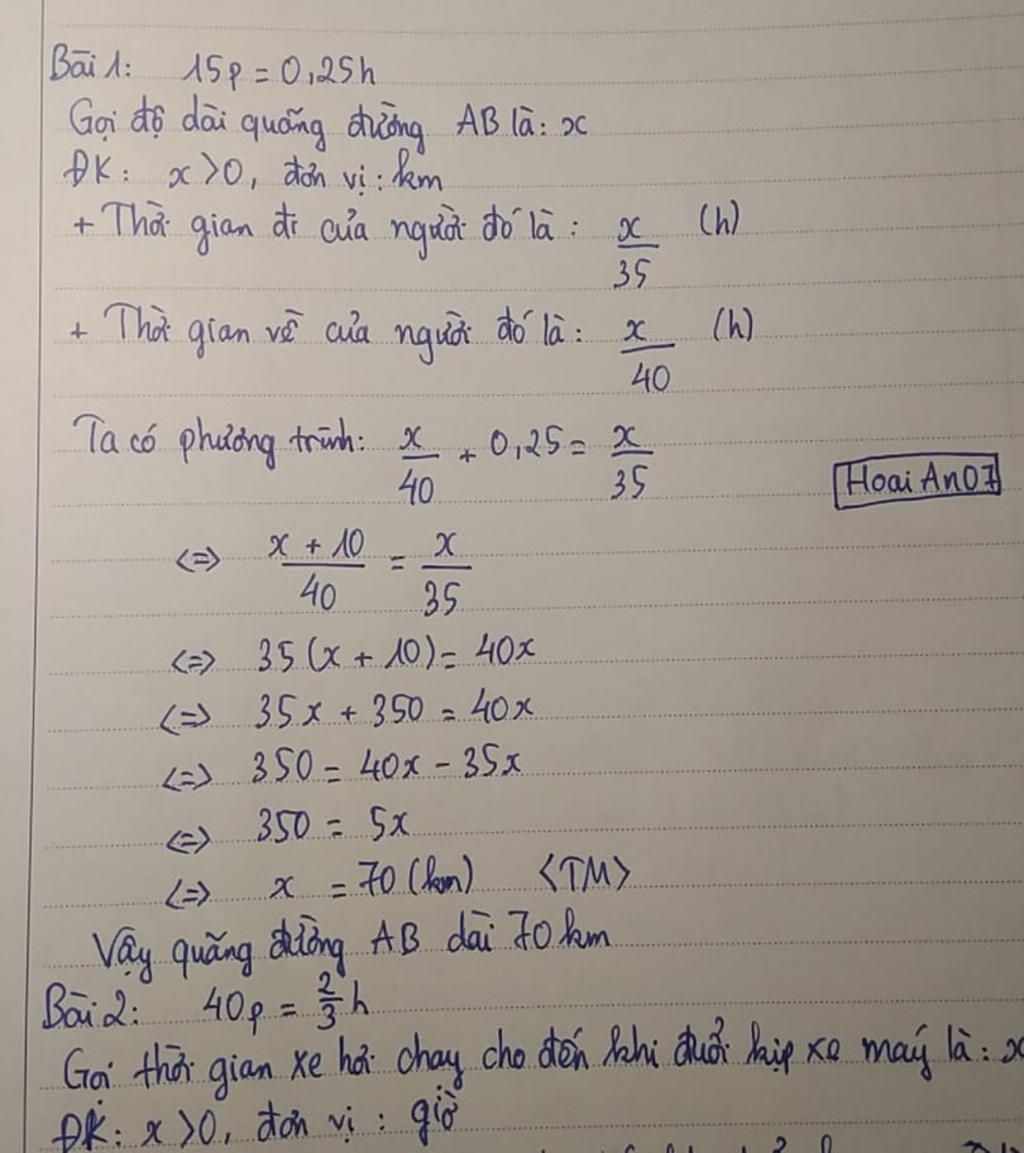 Bài 1: 15p = 0,25h
Gọi độ dài quãng đường AB là: x
ĐK: x > 0, đơn vị: km
+ Thời gian đi của người đó là: x/35 (h)
+ Thời gian về của người đó là: x/40 (h)
Ta có phương trình: x/40 + 0,25 = x/35
HoaiAn07
<=> (x + 10)/40 = x/35
<=> 35(x + 10) = 40x
<=> 35x + 350 = 40x
<=> 350 = 40x - 35x
<=> 350 = 5x
<=> x = 70 (km) <TM>
Vậy quãng đường AB dài 70 km
Bài 2: 40p = 2/3 h
Gọi thời gian xe hơi chạy cho đến khi đuổi kịp xe máy là: x
ĐK: x > 0, đơn vị: giờ